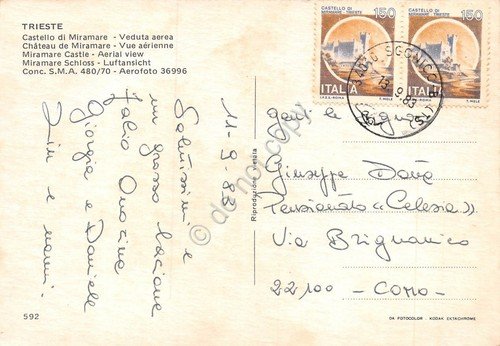 TRIESTE
Castello di Miramare - Veduta aerea
Château de Miramare - Vue aérienne
Miramare Castle - Aerial view
Miramare Schloss - Luftansicht
Conc. S.M.A. 480/70 - Aerofoto 36996
11-9-83
Salutissimi e
un grosso bacione
Fabio
Giorgia e Daniele
e nonni.
592
Riproduzione vietata
CASTELLO DI
MIRAMARE - TRIESTE
150
ITALIA
I.P.Z.S. - ROMA
T. MIELE
CASTELLO DI
MIRAMARE - TRIESTE
150
ITALIA
I.P.Z.S. - ROMA
T. MIELE
34010 SGONICO
13.9.83
Gent.le Signora
Giuseppe
Pensionato «Celesia»
Via
22100 - COMO -
DA FOTOCOLOR - KODAK EKTACHROME
do not copy